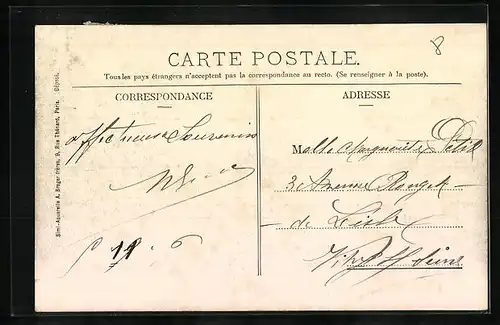 8
CARTE POSTALE.
Tous les pays étrangers n'acceptent pas la correspondance au recto. (Se renseigner à la poste).
CORRESPONDANCE
affectueux Souvenirs
ADRESSE
Melle Marguerite Petit
3 Avenue Rouget
de Lisle
Vitry s/ Seine
Simi-Aquarelle A. Breger Frères, 9, Rue Thénard, Paris. Déposé.